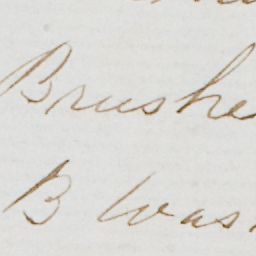 Brushe
B Was